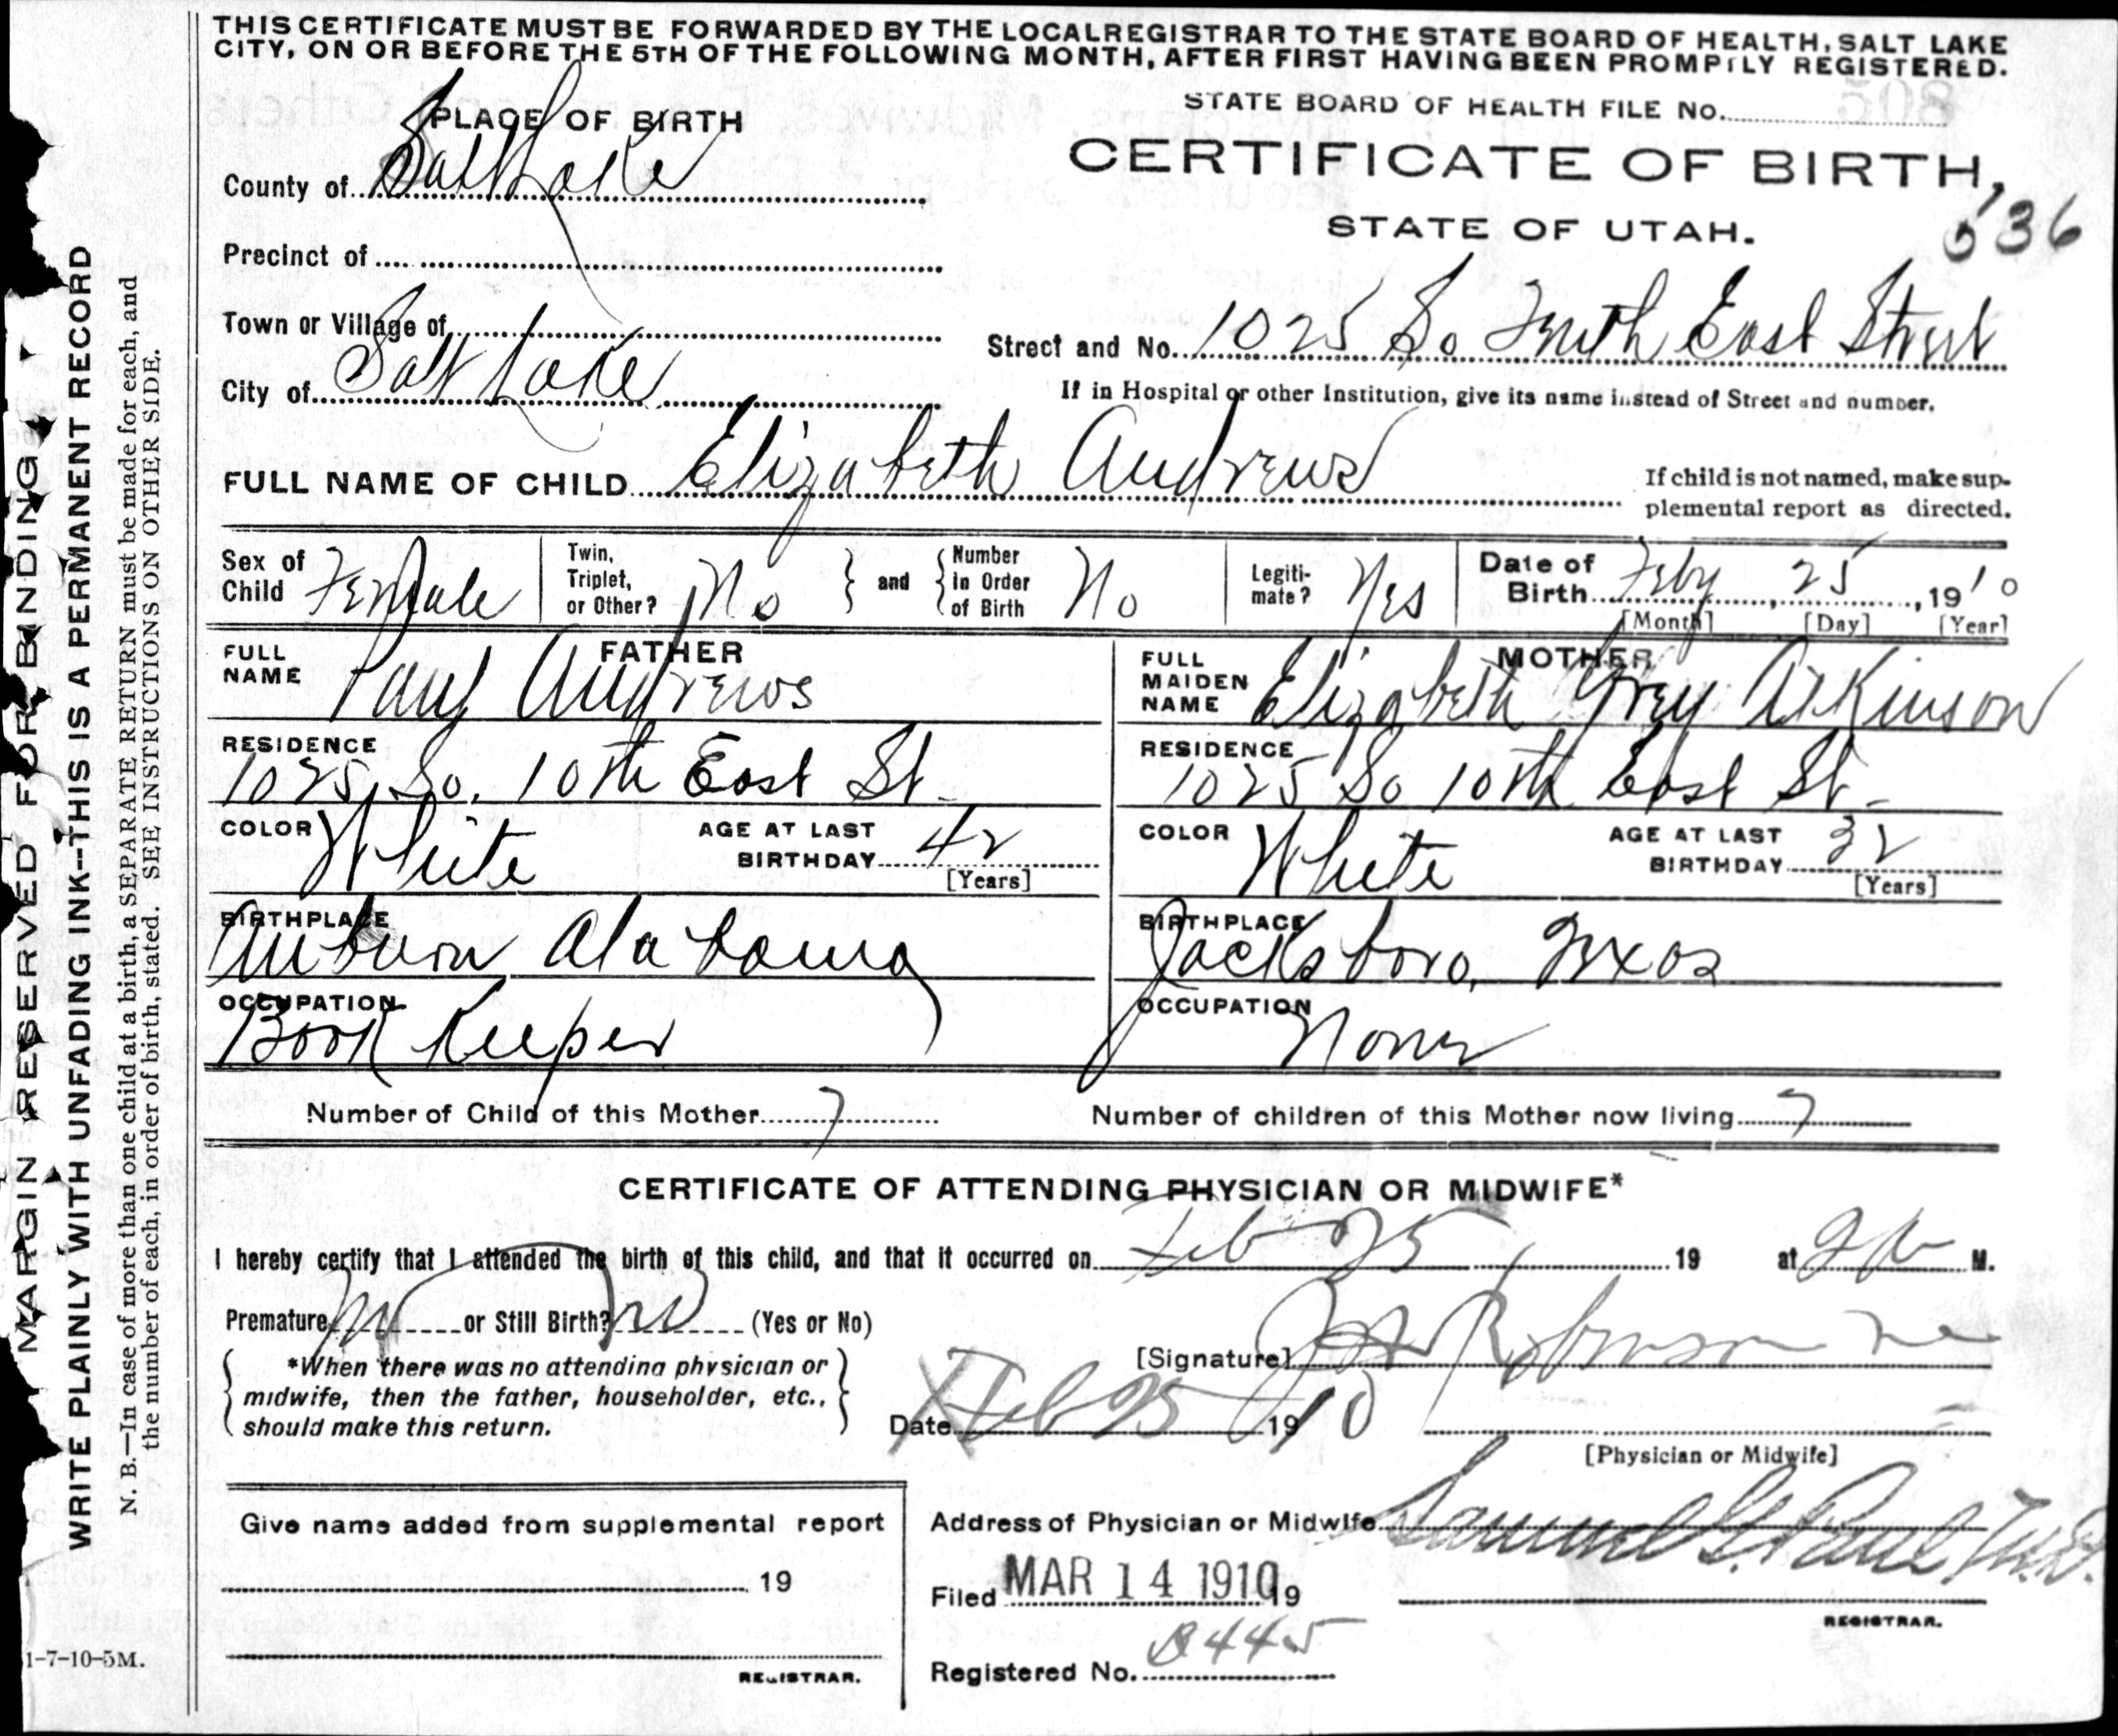 THIS CERTIFICATE MUST BE FORWARDED BY THE LOCAL REGISTRAR TO THE STATE BOARD OF HEALTH, SALT LAKE
CITY, ON OR BEFORE THE 5TH OF THE FOLLOWING MONTH, AFTER FIRST HAVING BEEN PROMPTLY REGISTERED.
STATE BOARD OF HEALTH FILE No.
PLACE OF BIRTH
CERTIFICATE OF BIRTH,
County of Salt Lake
STATE OF UTAH.
536
Precinct of
Town or Village of
Street and No. 1025 So Tenth East Street
City of Salt Lake
If in Hospital or other Institution, give its name instead of Street and number.
FULL NAME OF CHILD Elizabeth Andrews
If child is not named, make sup-
plemental report as directed.
Sex of Child Female
Twin, Triplet, or Other? No
and
Number in Order of Birth No
Legiti-mate? Yes
Date of Birth Feby 25, 1910
[Month] [Day] [Year]
FATHER
FULL NAME Paul Andrews
MOTHER
FULL MAIDEN NAME Elizabeth Grey Atkinson
RESIDENCE 1025 So. 10th East St.
RESIDENCE 1025 So 10th East St.
COLOR White
AGE AT LAST BIRTHDAY 42 [Years]
COLOR White
AGE AT LAST BIRTHDAY 32 [Years]
BIRTHPLACE Auburn Alabama
BIRTHPLACE Jacksboro, Texas
OCCUPATION Book Keeper
OCCUPATION None
Number of Child of this Mother 7
Number of children of this Mother now living 7
CERTIFICATE OF ATTENDING PHYSICIAN OR MIDWIFE*
I hereby certify that I attended the birth of this child, and that it occurred on Feb 25 19 at 2 P M.
Premature no or Still Birth? no (Yes or No)
*When there was no attending physician or
midwife, then the father, householder, etc.,
should make this return.
[Signature] Robinson
Date Feb 25 1910
[Physician or Midwife]
Give name added from supplemental report
19
REGISTRAR.
Address of Physician or Midwife
Samuel G. Paul, M.D.
Filed MAR 14 1910 19
REGISTRAR.
Registered No. B445
MARGIN RESERVED FOR BINDING
WRITE PLAINLY WITH UNFADING INK--THIS IS A PERMANENT RECORD
N. B.—In case of more than one child at a birth, a SEPARATE RETURN must be made for each, and
the number of each, in order of birth, stated. SEE INSTRUCTIONS ON OTHER SIDE.
1-7-10-5M.